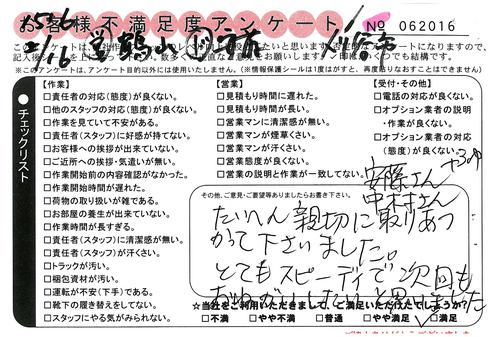 お客様不満足度アンケート
No 062016
チェックリスト
【作業】
□責任者の対応(態度)が良くない。
□他のスタッフの対応(態度)が良くない。
□作業を見ていて不安がある。
□責任者(スタッフ)に好感が持てない。
□お客様への挨拶が出来ていない。
□ご近所への挨拶・気遣いが無い。
□作業開始前の内容確認がなかった。
□作業開始時間が遅れた。
□荷物の取り扱いが雑である。
□お部屋の養生が出来ていない。
□作業時間が長すぎる。
□責任者(スタッフ)に清潔感が無い。
□責任者(スタッフ)が汗くさい。
□トラックが汚い。
□梱包資材が汚い。
□運転が不安(下手)である。
□靴下の履き替えをしてない。
□スタッフにやる気がみられない。
【営業】
□見積もり時間に遅れた。
□見積もり時間が長い。
□営業マンに清潔感が無い。
□営業マンが煙草くさい。
□営業マンが汗くさい。
□営業態度が良くない。
□営業の説明と作業が一致してない。
【受付・その他】
□電話の対応が良くない。
□オプション業者の説明
・作業が良くない。
□オプション業者の対応
(態度)が良くない。
その他、ご意見・ご要望等ありましたらお書き下さい。
安孫さん
中村さん
たいへん親切に取りあつ
かって下さいました。
とてもスピーディで次回も
おねがいしたいと思いました
☆当社をご利用いただきまして、ご満足いただけたでしょうか?
□不満 □やや不満 □普通 □やや満足 □満足